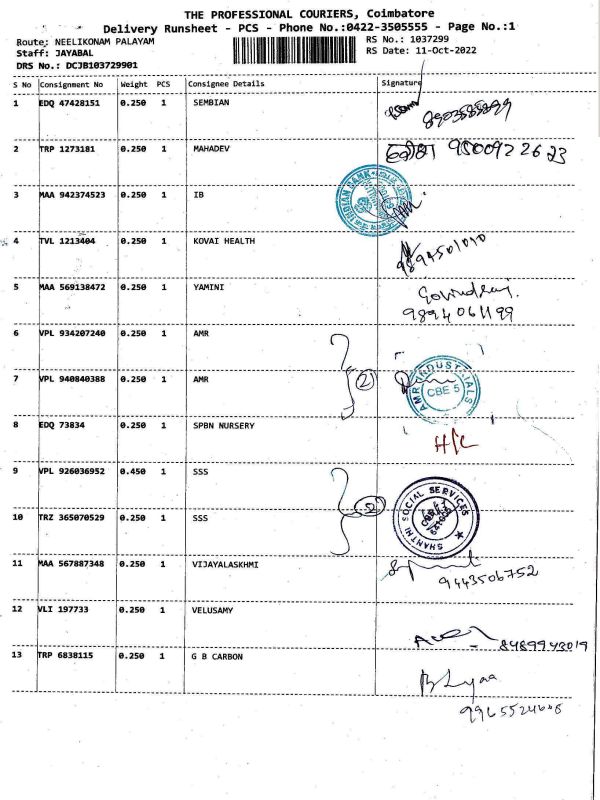 THE PROFESSIONAL COURIERS, Coimbatore
Delivery Runsheet - PCS - Phone No.:0422-3505555 - Page No.:1
Route: NEELIKONAM PALAYAM RS No.: 1037299
Staff: JAYABAL RS Date: 11-Oct-2022
DRS No.: DCJB103729901
S No Consignment No Weight PCS Consignee Details Signature
1 EDQ 47428151 0.250 1 SEMBIAN
2 TRP 1273181 0.250 1 MAHADEV 9500922623
3 MAA 942374523 0.250 1 IB
INDIAN BANK
4 TVL 1213404 0.250 1 KOVAI HEALTH
9894501010
5 MAA 569138472 0.250 1 YAMINI Govindraj.
9894061199
6 VPL 934207240 0.250 1 AMR
7 VPL 940840388 0.250 1 AMR (2)
AMR INDUSTRIALS CBE 5
8 EDQ 73834 0.250 1 SPBN NURSERY
H/C
9 VPL 926036952 0.450 1 SSS
(2)
10 TRZ 365070529 0.250 1 SSS
SHANTHI SOCIAL SERVICES
11 MAA 567887348 0.250 1 VIJAYALASKHMI
9443506752
12 VLI 197733 0.250 1 VELUSAMY
8489943019
13 TRP 6838115 0.250 1 G B CARBON